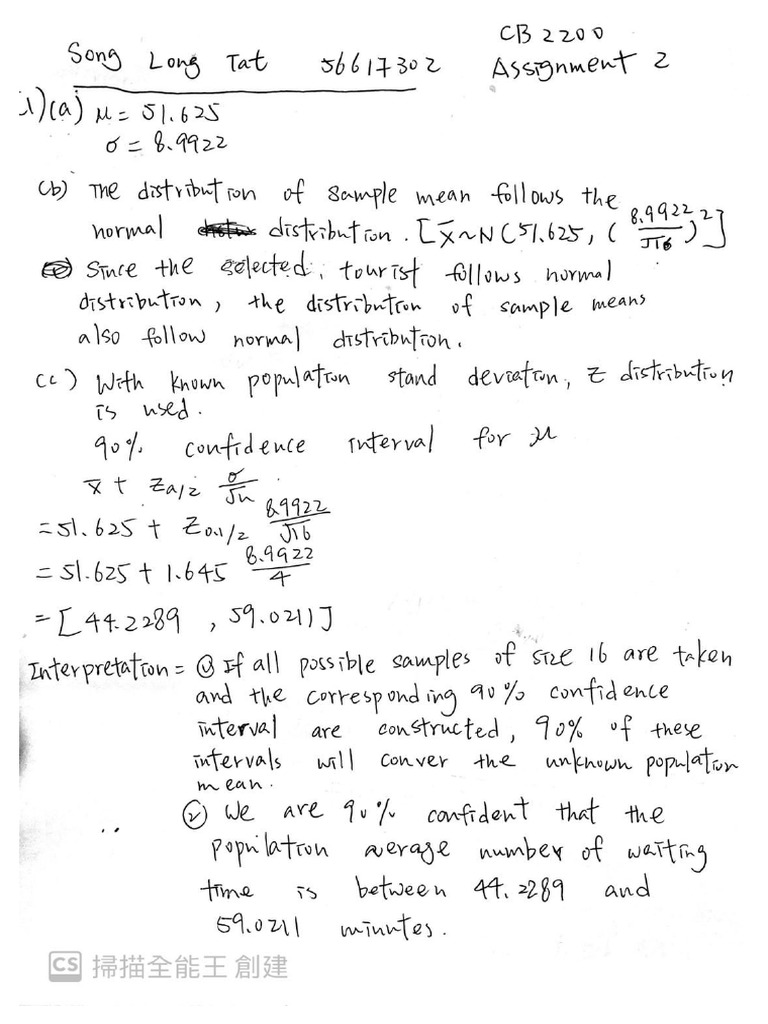 CB 2200
Song Long Tat 56617302 Assignment 2
1)(a) μ = 51.625
σ = 8.9922
(b) The distribution of sample mean follows the
normal distribution. [X̄~N(51.625, (8.9922/√16)²]
Since the selected, tourist follows normal
distribution, the distribution of sample means
also follow normal distribution.
(c) With known population stand deviation, Z distribution
is used.
90% confidence interval for μ
x̄ ± Za/2 σ/√n
= 51.625 ± Z0.1/2 8.9922/√16
= 51.625 ± 1.645 8.9922/4
= [44.2289 , 59.0211]
Interpretation = ① If all possible samples of size 16 are taken
and the corresponding 90% confidence
interval are constructed, 90% of these
intervals will conver the unknown population
mean.
② We are 90% confident that the
population average number of waiting
time is between 44.2289 and
59.0211 minutes.
CS 掃描全能王 創建